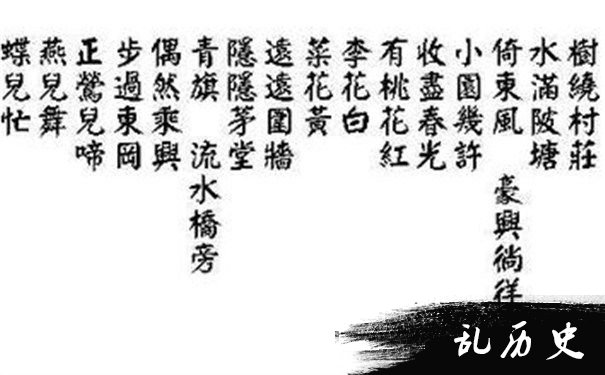 樹繞村莊
水滿陂塘
倚東風 豪興徜徉
小園幾許
收盡春光
有桃花紅
李花白
菜花黃
遠遠圍牆
隱隱茅堂
青旗 流水橋旁
偶然乘興
步過東岡
正鶯兒啼
燕兒舞
蝶兒忙
乱历史